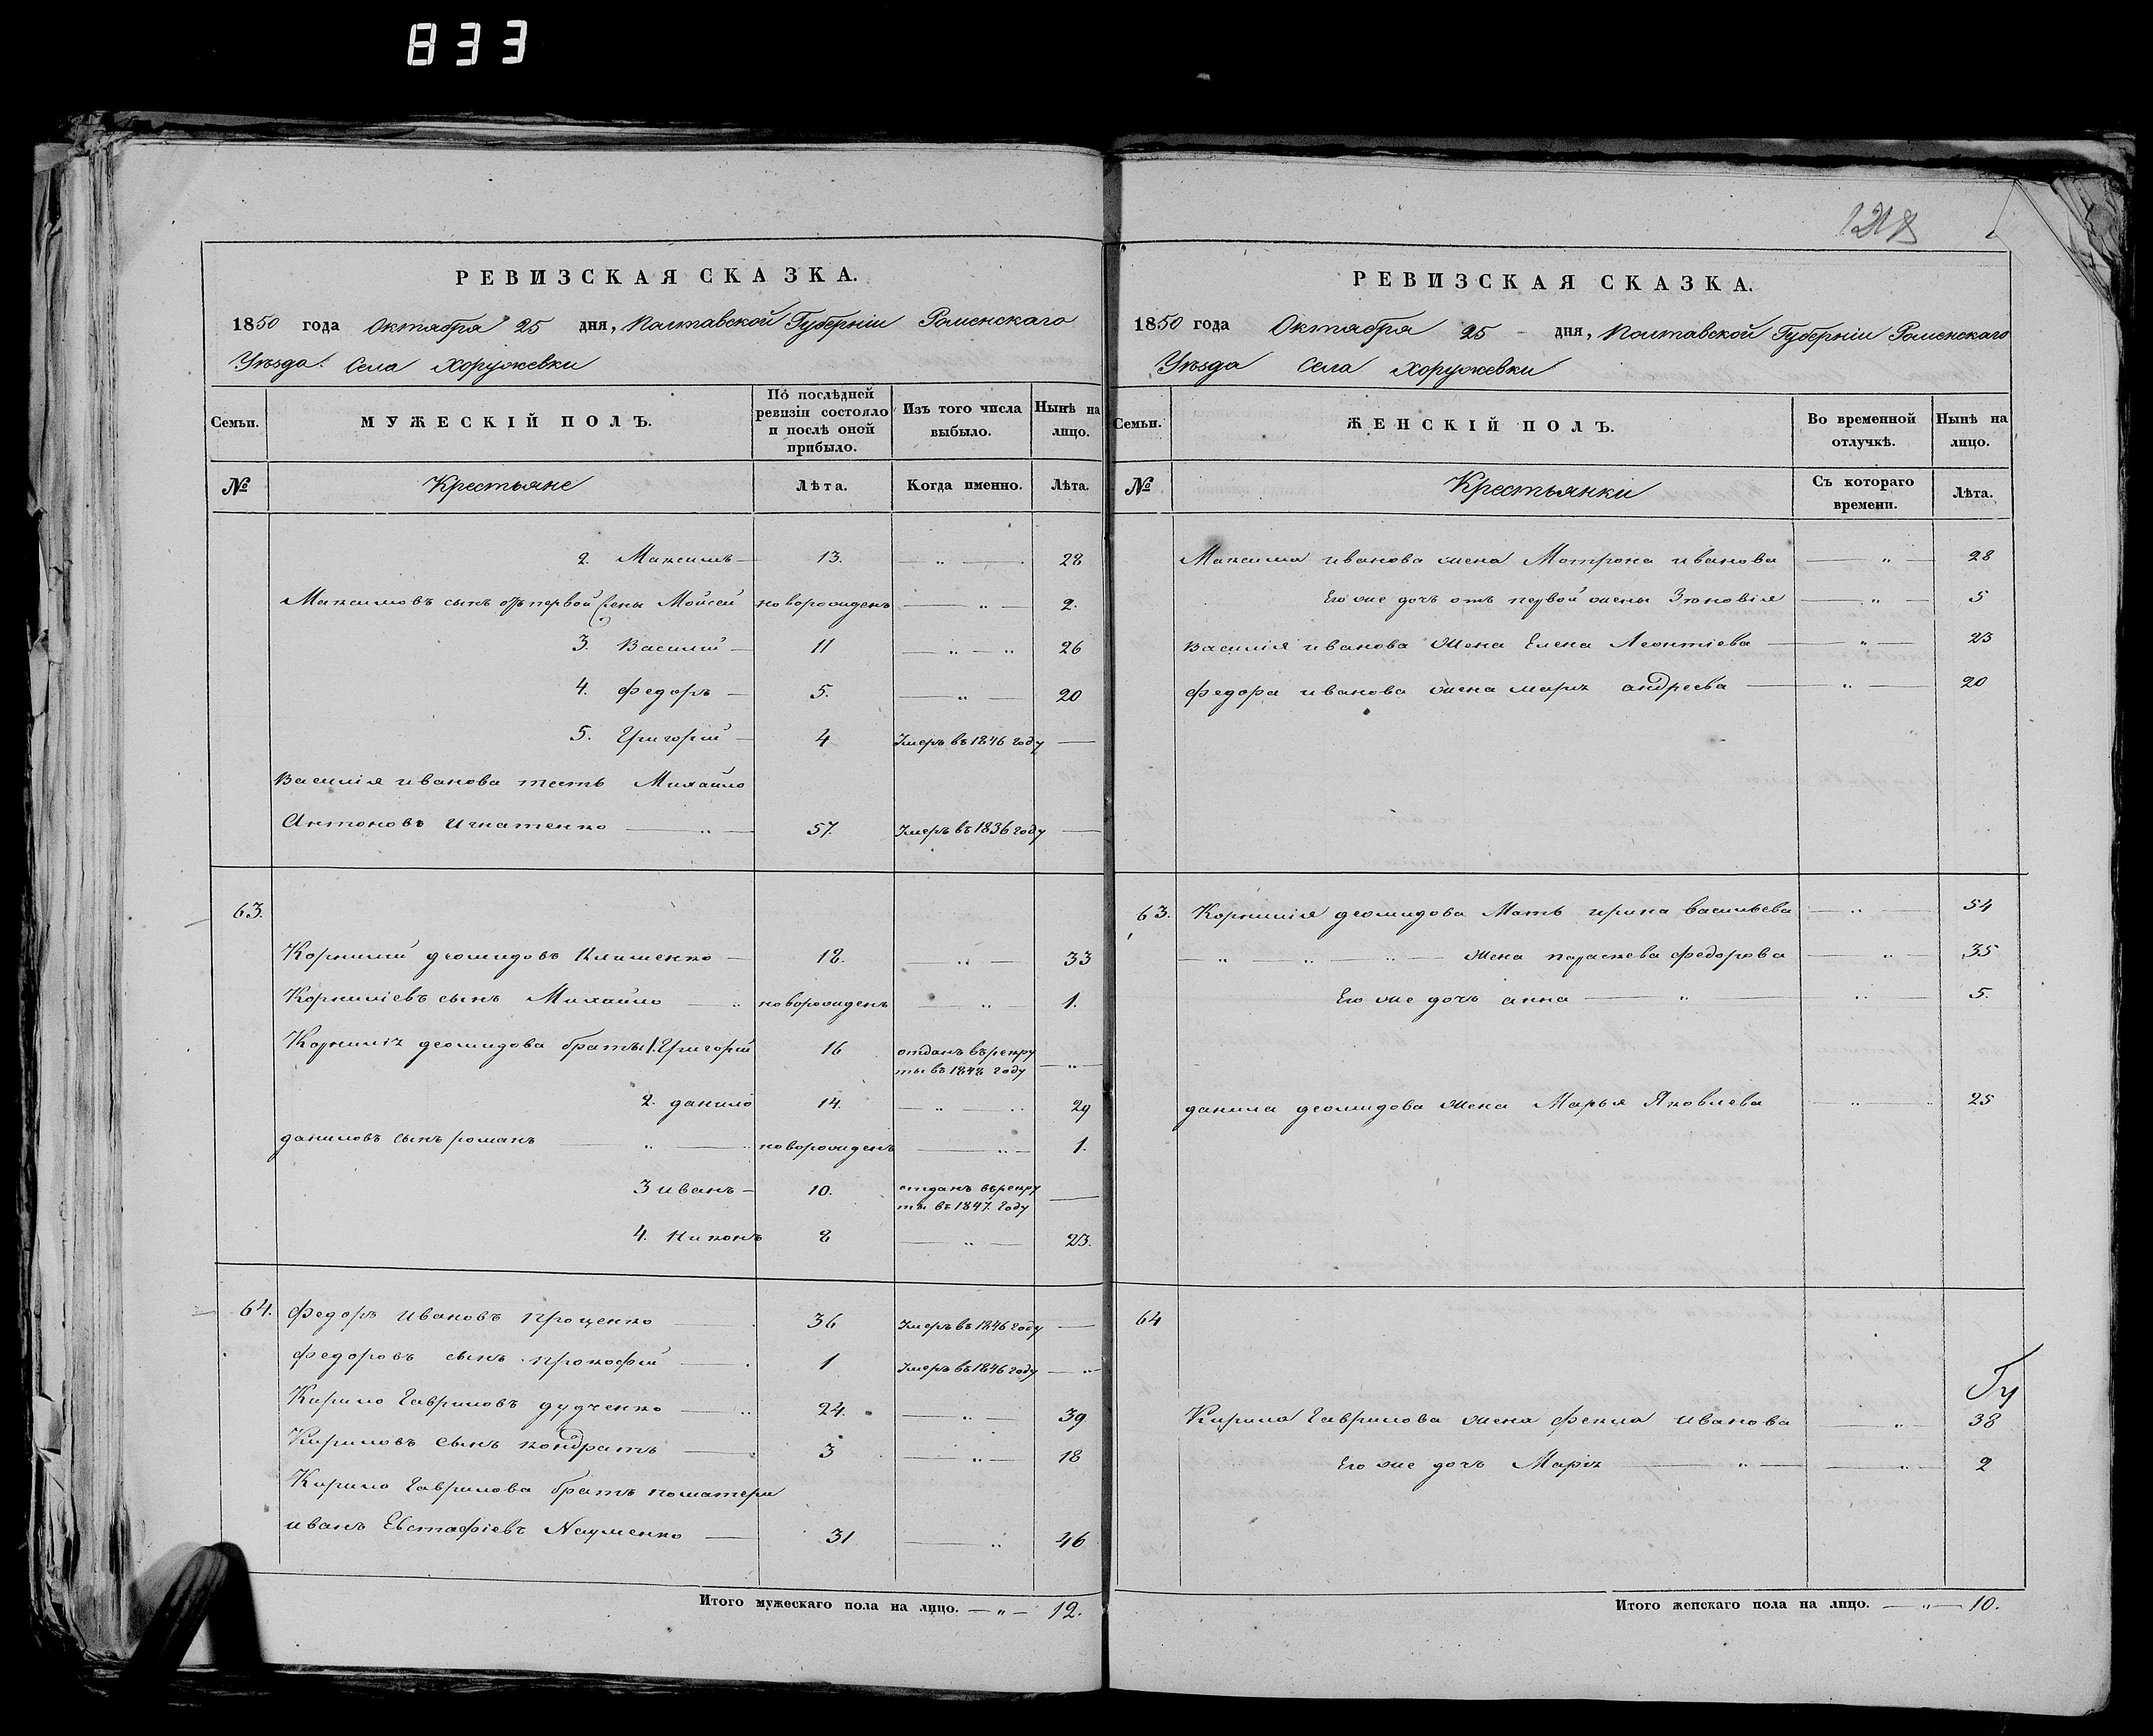 833
РЕВИЗСКАЯ СКАЗКА.
1850 года Октября 25 дня, Полтавской Губерніи Роменскаго
Уѣзда. Села Хоружевки
Семьи. МУЖЕСКІЙ ПОЛЪ. По послѣдней ревизіи состояло и послѣ оной прибыло. Изъ того числа выбыло. Нынѣ на лицо.
№ Крестьяне Лѣта. Когда именно. Лѣта.
2. Максимъ — 13. — „ — 28
Максимовъ сынъ отъ первой жены Мойсей новорожденъ — „ — 2.
3. Василій — 11 — „ — „ 26
4. Федоръ — 5. — „ — 20
5. Григорій — 4 Умеръ въ 1846 году —
Василія иванова тесть Михайло
Антоновъ Игнатенко — „ — 57. Умеръ въ 1836 году —
63.
Корнилій деомидовъ Клименко — 18. — „ — 33
Корниліевъ сынъ Михайло — „ новорожденъ — „ 1.
Корнилія деомидова братья 1. Григорій 16 отданъ врекру
ты въ 1848 году — „ —
2. данило 14. — „ 29
даниловъ сынъ романъ — „ — новорожденъ — „ — 1.
3 иванъ — 10. отданъ врекру
ты въ 1847. году —
4. Никонъ 8 — „ — 23.
64. Федоръ Ивановъ Проценко — 36 Умеръ въ 1846 году —
Федоровъ сынъ прокофій — 1 Умеръ въ 1846 году — „
Кирило Гавриловъ дудченко — „ 24. — „ — 39
Кириловъ сынъ кондратъ — 3 — „ — 18
Кирило Гаврилова братъ поматери
иванъ Евстафіевъ Науменко — 31 — „ 46
Итого мужескаго пола на лицо. — „ — 12.
РЕВИЗСКАЯ СКАЗКА.
1850 года Октября 25 — дня, Полтавской Губерніи Роменскаго
Уѣзда Села Хоружевки
Семьи. ЖЕНСКІЙ ПОЛЪ. Во временной отлучкѣ. Нынѣ на лицо.
№ Крестьянки Съ котораго времени. Лѣта.
Максима иванова жена Мотрона иванова — „ — 28
Его же дочъ отъ первой жены Зѣновія — „ — 5
Василія иванова жена Елена Леонтіева — „ — 23
федора иванова жена марія андреева — „ — 20
63. Корнилія деомидова Мать ирина васильева — „ — 54
— „ „ „ — жена параскева федорова — „ — 35
Его же дочъ анна — „ — „ — 5.
данила деомидова жена Марья Яковлева — „ — 25
64
Кирила Гаврилова жена фекла иванова — „ 38
Его же дочъ Марія — „ — „ — 2
Итого женскаго пола на лицо. — „ — 10.